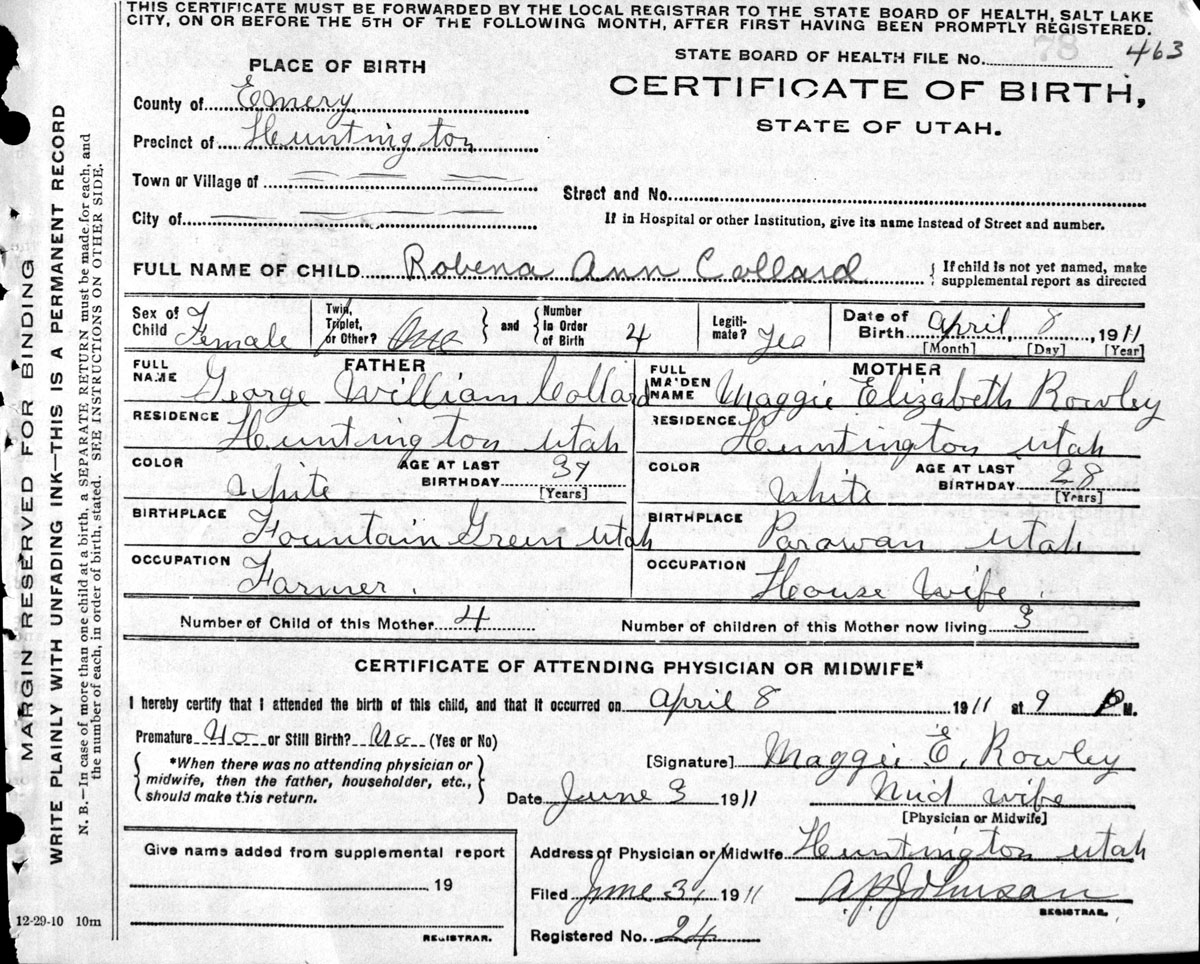 THIS CERTIFICATE MUST BE FORWARDED BY THE LOCAL REGISTRAR TO THE STATE BOARD OF HEALTH, SALT LAKE
CITY, ON OR BEFORE THE 5TH OF THE FOLLOWING MONTH, AFTER FIRST HAVING BEEN PROMPTLY REGISTERED.
78
STATE BOARD OF HEALTH FILE No. 463
PLACE OF BIRTH
CERTIFICATE OF BIRTH,
STATE OF UTAH.
County of Emery
Precinct of Huntington
Town or Village of
Street and No.
City of
If in Hospital or other Institution, give its name instead of Street and number.
FULL NAME OF CHILD Robena Ann Collard { If child is not yet named, make
supplemental report as directed
Sex of Child Female
Twin, Triplet, or Other? One } and { Number in Order of Birth 4
Legitimate? Yes
Date of Birth April 8, 1911
[Month] [Day] [Year]
FATHER
FULL NAME George William Collard
MOTHER
FULL MAIDEN NAME Maggie Elizabeth Rowley
RESIDENCE Huntington Utah
RESIDENCE Huntington Utah
COLOR White AGE AT LAST BIRTHDAY 39 [Years]
COLOR White AGE AT LAST BIRTHDAY 28 [Years]
BIRTHPLACE Fountain Green Utah
BIRTHPLACE Parowan Utah
OCCUPATION Farmer.
OCCUPATION House Wife.
Number of Child of this Mother 4 Number of children of this Mother now living 3
CERTIFICATE OF ATTENDING PHYSICIAN OR MIDWIFE*
I hereby certify that I attended the birth of this child, and that it occurred on April 8 1911 at 9 P M.
Premature No or Still Birth? No (Yes or No)
*When there was no attending physician or
midwife, then the father, householder, etc.,
should make this return.
[Signature] Maggie E. Rowley
Date June 3 1911 Mid wife
[Physician or Midwife]
Give name added from supplemental report
19
REGISTRAR.
Address of Physician or Midwife Huntington Utah
Filed June 3, 1911 A.P. Johnson
REGISTRAR.
Registered No. 24
12-29-10 10m
MARGIN RESERVED FOR BINDING
WRITE PLAINLY WITH UNFADING INK—THIS IS A PERMANENT RECORD
N. B.—In case of more than one child at a birth, a SEPARATE RETURN must be made for each, and
the number of each, in order of birth, stated. SEE INSTRUCTIONS ON OTHER SIDE,